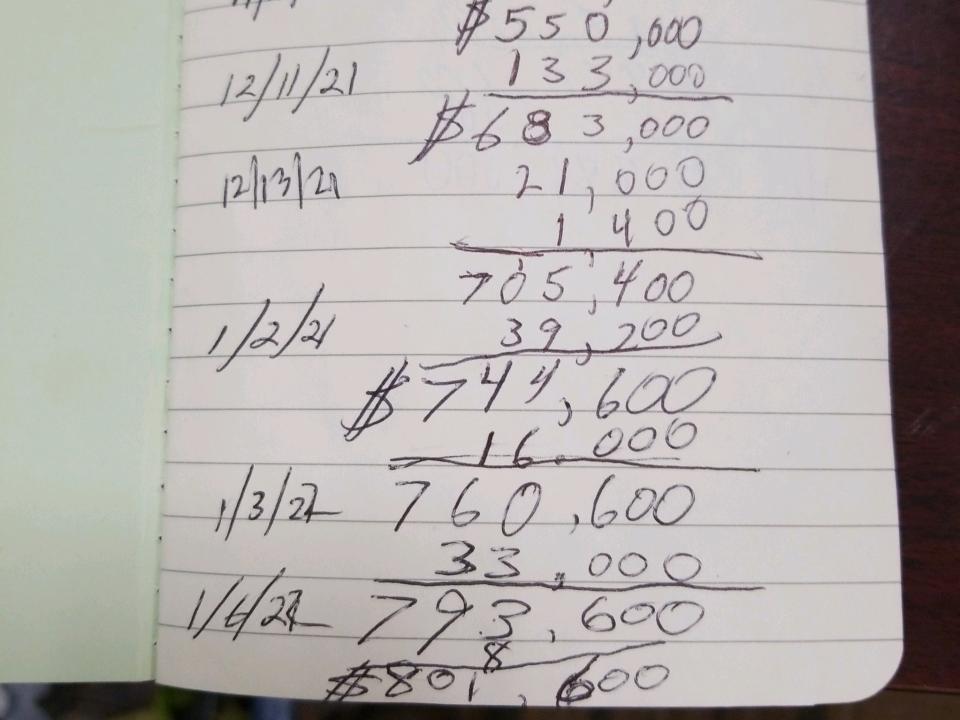 $550,000
12/11/21 133,000
$683,000
12/13/21 21,000
1,400
705,400
1/2/21 39,200
$744,600
16,000
1/3/22 760,600
33,000
793,600
8
$801,600